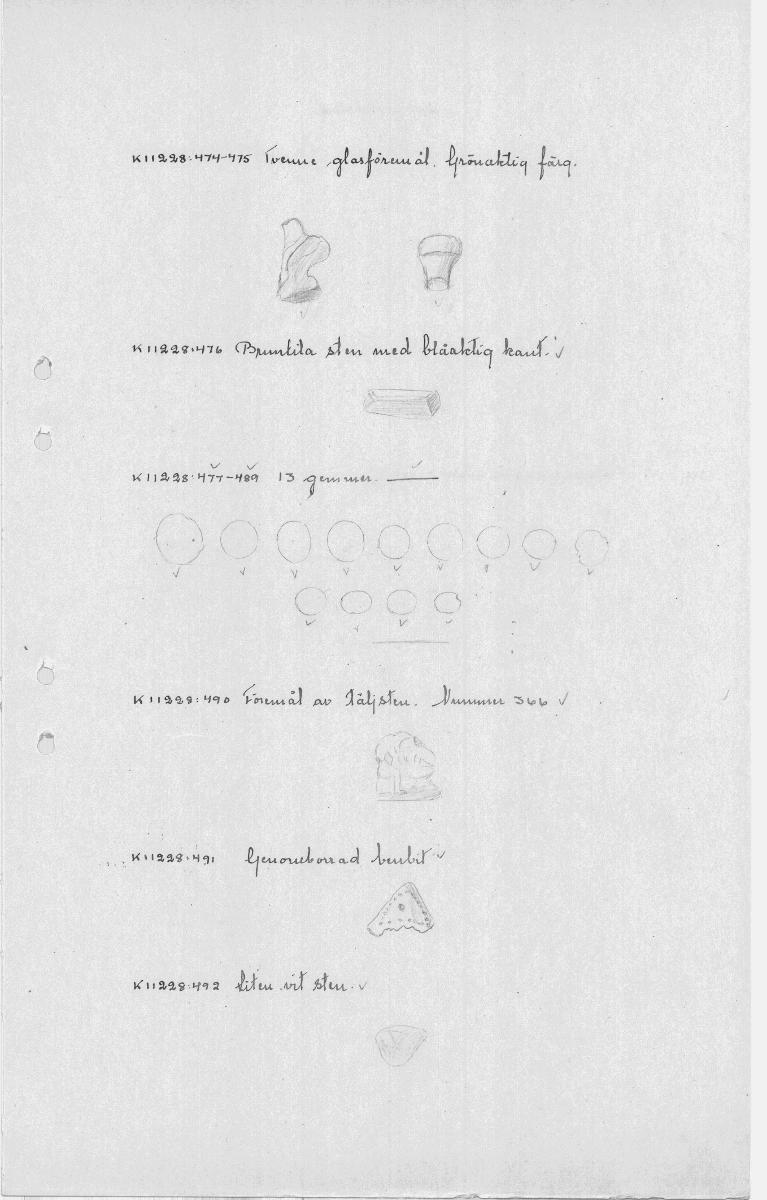 K 11228:474-475 Tvenne glasföremål. Grönaktig färg.
K 11228:476 Brunlila sten med blåaktig kant.
K 11228:477-489 13 gemmer.
K 11228:490 Föremål av täljsten. Nummer 366
K 11228:491 Genomborrad benbit
K 11228:492 Liten vit sten.